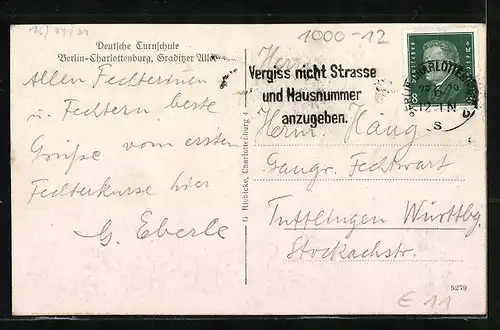 1000-12
Deutsche Turnschule
Berlin-Charlottenburg, Graditzer Allee
Allen Fechterinnen
u. Fechtern beste
Grüße vom ersten
Fechterkurse hier
G. Eberle
G. Riebicke, Charlottenburg 4
Vergiss nicht Strasse
und Hausnummer
anzugeben.
CHARLOTTENBURG
12-1 N
S
8
Herrn
Herrn Häug
Gaugr. Fechtwart
Tuttlingen Württbg.
Stockachstr.
5279
€ 11